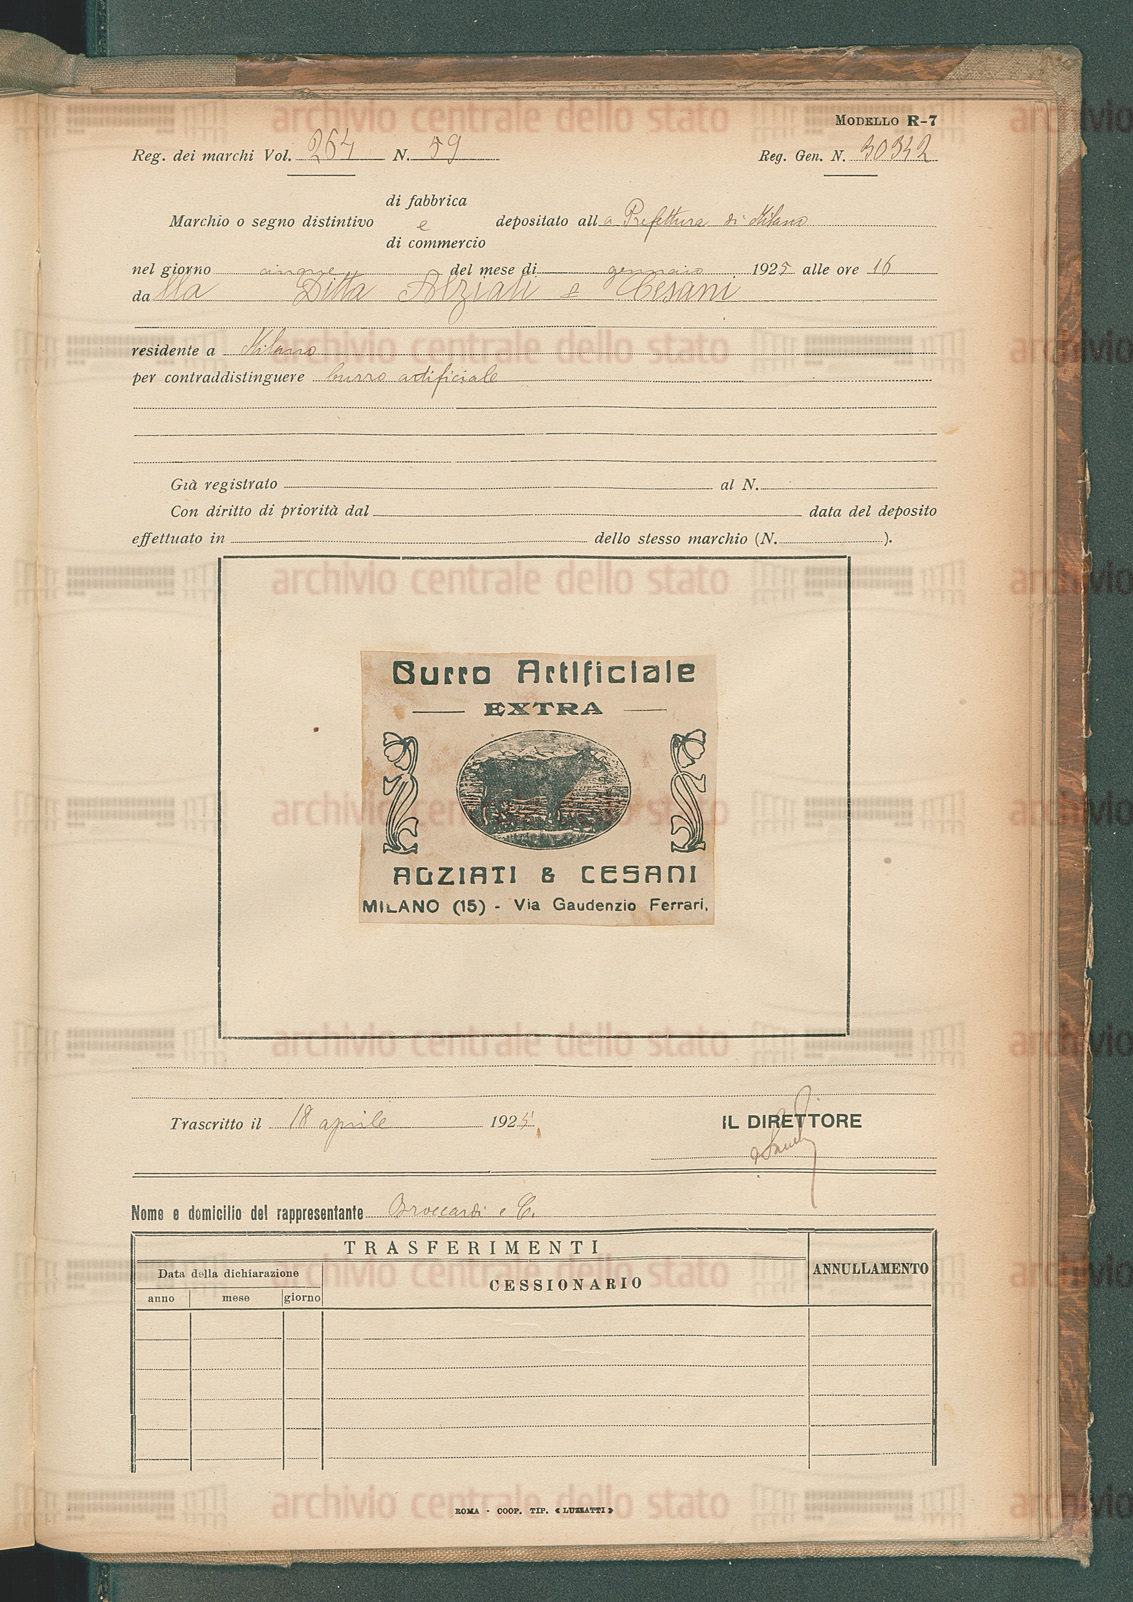 MODELLO R-7
Reg. dei marchi Vol. 264 N. 59 Reg. Gen. N. 30342
di fabbrica
Marchio o segno distintivo e depositato alla Prefettura di Milano
di commercio
nel giorno cinque del mese di gennaio 1925 alle ore 16
dalla Ditta Alziati e Cesani
residente a Milano
per contraddistinguere burro artificiale
Già registrato al N.
Con diritto di priorità dal data del deposito
effettuato in dello stesso marchio (N. ).
Burro Artificiale
EXTRA
ALZIATI & CESANI
MILANO (15) - Via Gaudenzio Ferrari,
Trascritto il 18 aprile 1925
IL DIRETTORE
Nome e domicilio del rappresentante Broccardi e C.
TRASFERIMENTI
Data della dichiarazione CESSIONARIO ANNULLAMENTO
anno mese giorno
ROMA - COOP. TIP. « LUZZATTI »
archivio centrale dello stato